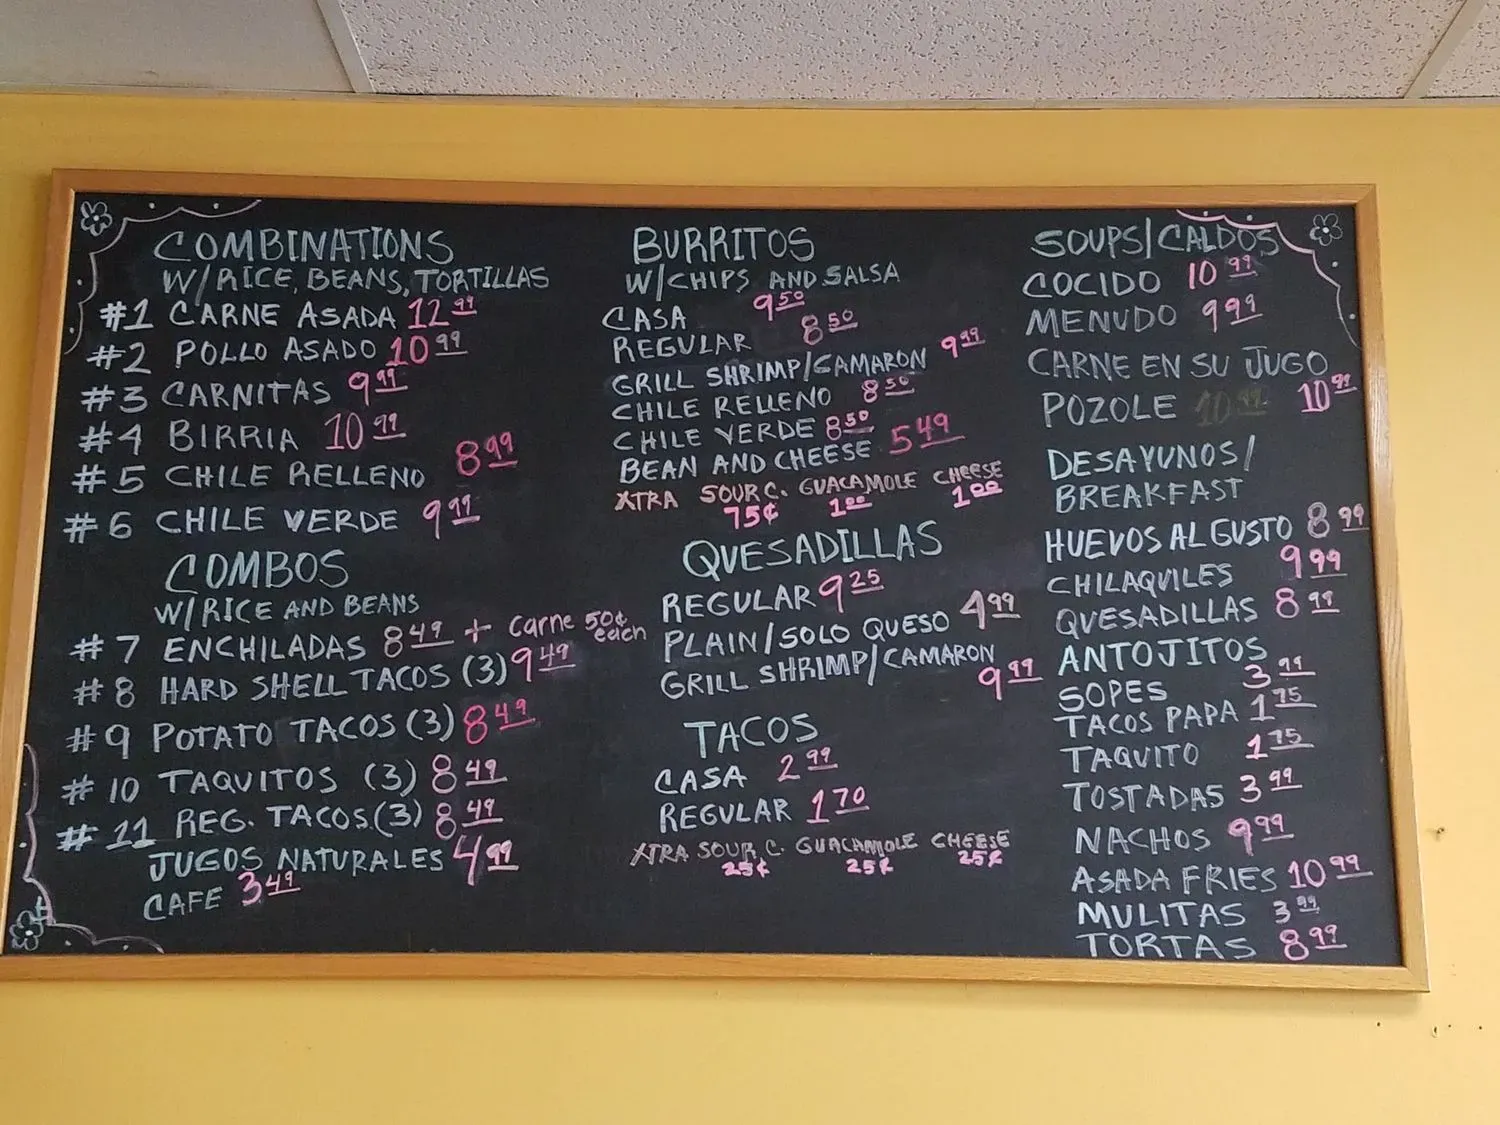 COMBINATIONS
W/RICE, BEANS, TORTILLAS
#1 CARNE ASADA 12 99
#2 POLLO ASADO 10 99
#3 CARNITAS 9 99
#4 BIRRIA 10 99
#5 CHILE RELLENO 8 99
#6 CHILE VERDE 9 99
COMBOS
W/RICE AND BEANS
#7 ENCHILADAS 8 49 + Carne 50¢ each
#8 HARD SHELL TACOS (3) 9 49
#9 POTATO TACOS (3) 8 49
#10 TAQUITOS (3) 8 49
#11 REG. TACOS (3) 8 49
JUGOS NATURALES 4 99
CAFE 3 49
BURRITOS
W/CHIPS AND SALSA
CASA 9 50
REGULAR 8 50
GRILL SHRIMP/CAMARON 9 99
CHILE RELLENO 8 50
CHILE VERDE 8 50
BEAN AND CHEESE 5 49
XTRA SOUR C. GUACAMOLE CHEESE
75¢ 1 00 1 00
QUESADILLAS
REGULAR 9 25
PLAIN/SOLO QUESO 4 99
GRILL SHRIMP/CAMARON
9 99
TACOS
CASA 2 99
REGULAR 1 70
XTRA SOUR C. GUACAMOLE CHEESE
25¢ 25¢ 25¢
SOUPS/CALDOS
COCIDO 10 99
MENUDO 9 99
CARNE EN SU JUGO
POZOLE 10 99 10 99
DESAYUNOS/
BREAKFAST
HUEVOS AL GUSTO 8 99
CHILAQUILES 9 99
QUESADILLAS 8 99
ANTOJITOS
SOPES 3 99
TACOS PAPA 1 75
TAQUITO 1 75
TOSTADAS 3 99
NACHOS 9 99
ASADA FRIES 10 99
MULITAS 3 99
TORTAS 8 99